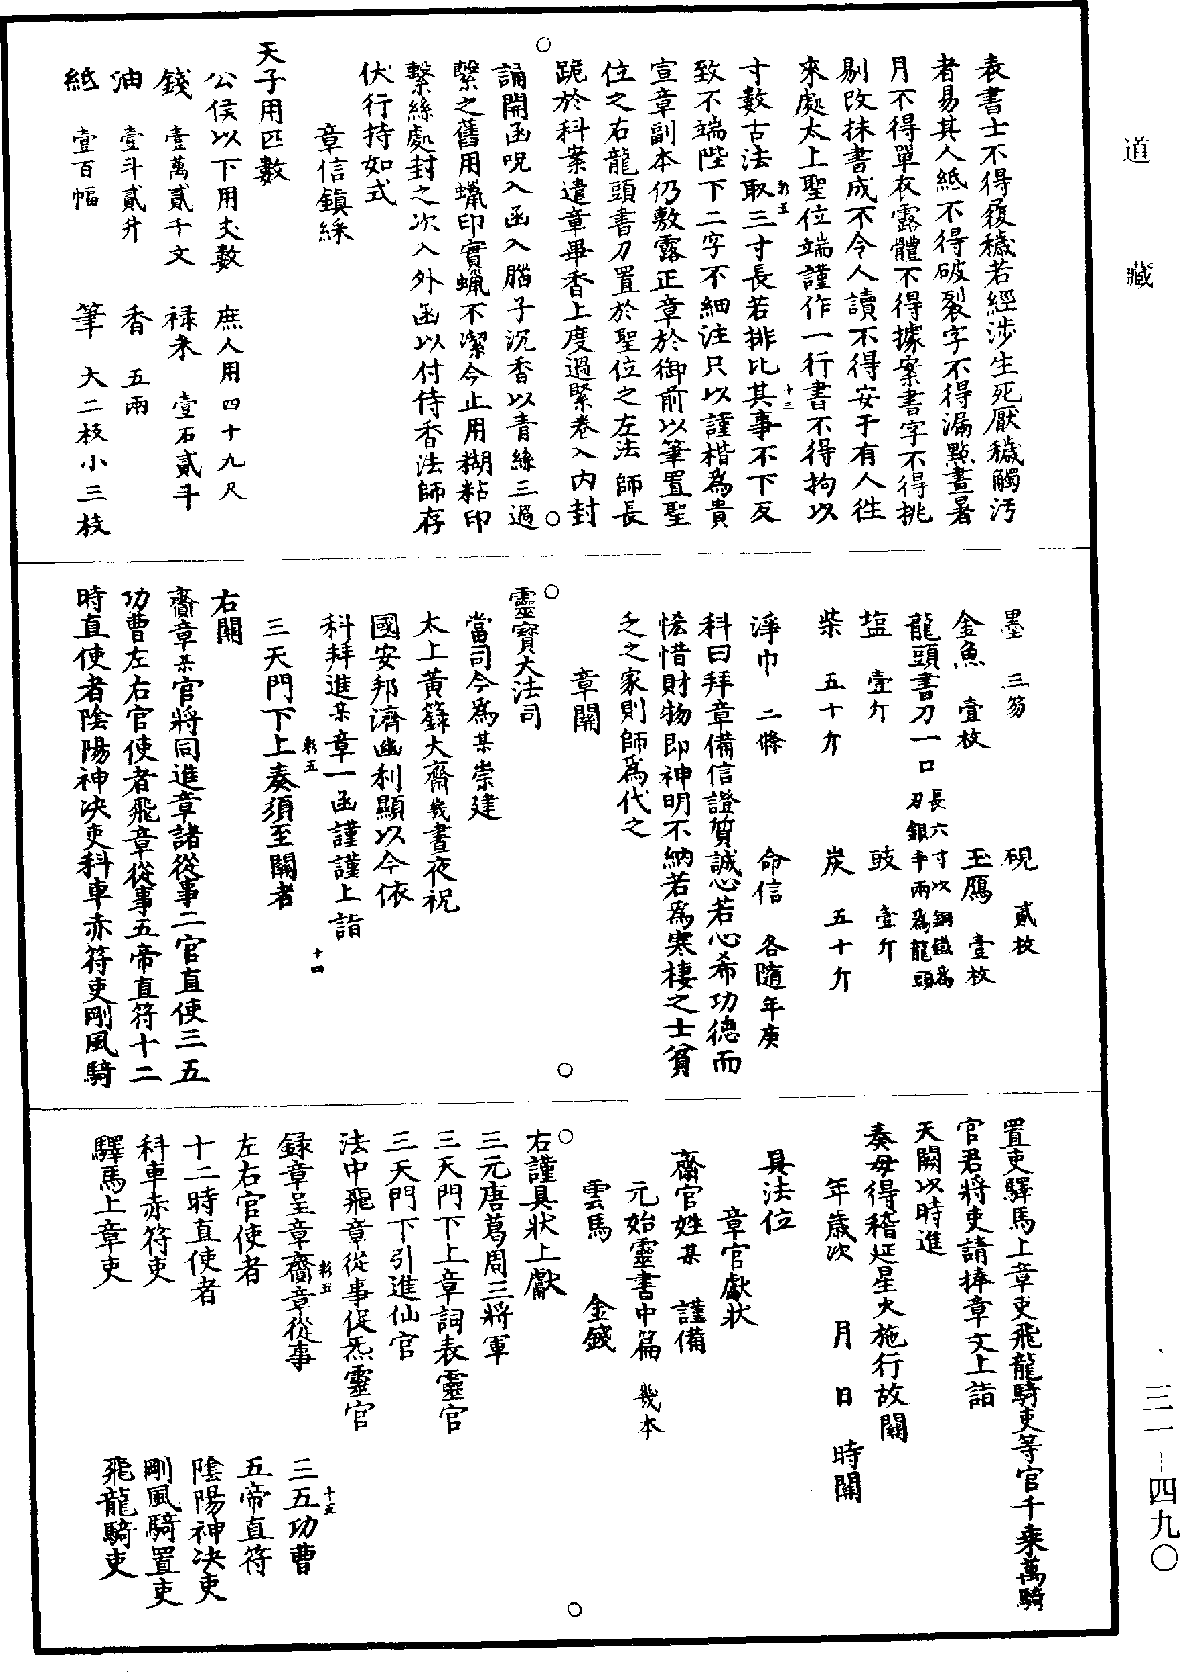 道藏
三一—四九〇
表書士不得履穢若經涉生死厭穢觸污
者易其人紙不得破裂字不得漏點晝暑
月不得單衣露體不得據案書字不得挑
剔改抹書成不令人讀不得安于有人徃
來處太上聖位端謹作一行書不得拘以
寸數古法取三寸長若排比其事不下及
致不端陛下二字不細注只以謹楷爲貴
宣章副本仍敷露正章於御前以筆置聖
位之右龍頭書刀置於聖位之左法師長
跪於科案遣章畢香上度過緊卷入内封
誦開函呪入函入腦子沉香以青絲三過
繫之舊用蠟印實蠟不潔今止用糊粘印
繫絲處封之次入外函以付侍香法師存
伏行持如式
章信鎮綵
天子用匹數
公侯以下用丈數 庶人用四十九尺
錢 壹萬貳千文 禄米 壹石貳斗
油 壹斗貳升 香 五兩
紙 壹百幅 筆 大二枝小三枝
墨 三笏 硯 貳枚
金魚 壹枚 玉鴈 壹枚
龍頭書刀一口 長六寸以鋼鐵爲刃銀半兩爲龍頭
塩 壹斤 豉 壹斤
柴 五十斤 炭 五十斤
淨巾 二條 命信 各隨年庚
科曰拜章備信證質誠心若心希功德而
恡惜財物即神明不納若爲寒棲之士貧
乏之家則師爲代之
章關
靈寳大法司
當司今爲某崇建
太上黄籙大齋幾晝夜祝
國安邦濟幽利顯以今依
科拜進某章一函謹謹上詣
三天門下上奏須至關者
右關
齎章某官將同進章諸從事二官直使三五
功曹左右官使者飛章從事五帝直符十二
時直使者陰陽神决吏科車赤符吏剛風騎
置吏驛馬上章吏飛龍騎吏等官千乗萬騎
官君將吏請捧章文上詣
天闕以時進
奏毋得稽延星火施行故關
年歲次 月 日 時關
具法位
章官獻狀
齋官姓某 謹備
元始靈書中篇 幾本
雲馬 金錢
右謹具狀上獻
三元唐葛周三將軍
三天門下上章詞表靈官
三天門下引進仙官
法中飛章從事促炁靈官
録章呈章齎章從事 三五功曹
左右官使者 五帝直符
十二時直使者 陰陽神决吏
科車赤符吏 剛風騎置吏
驛馬上章吏 飛龍騎吏